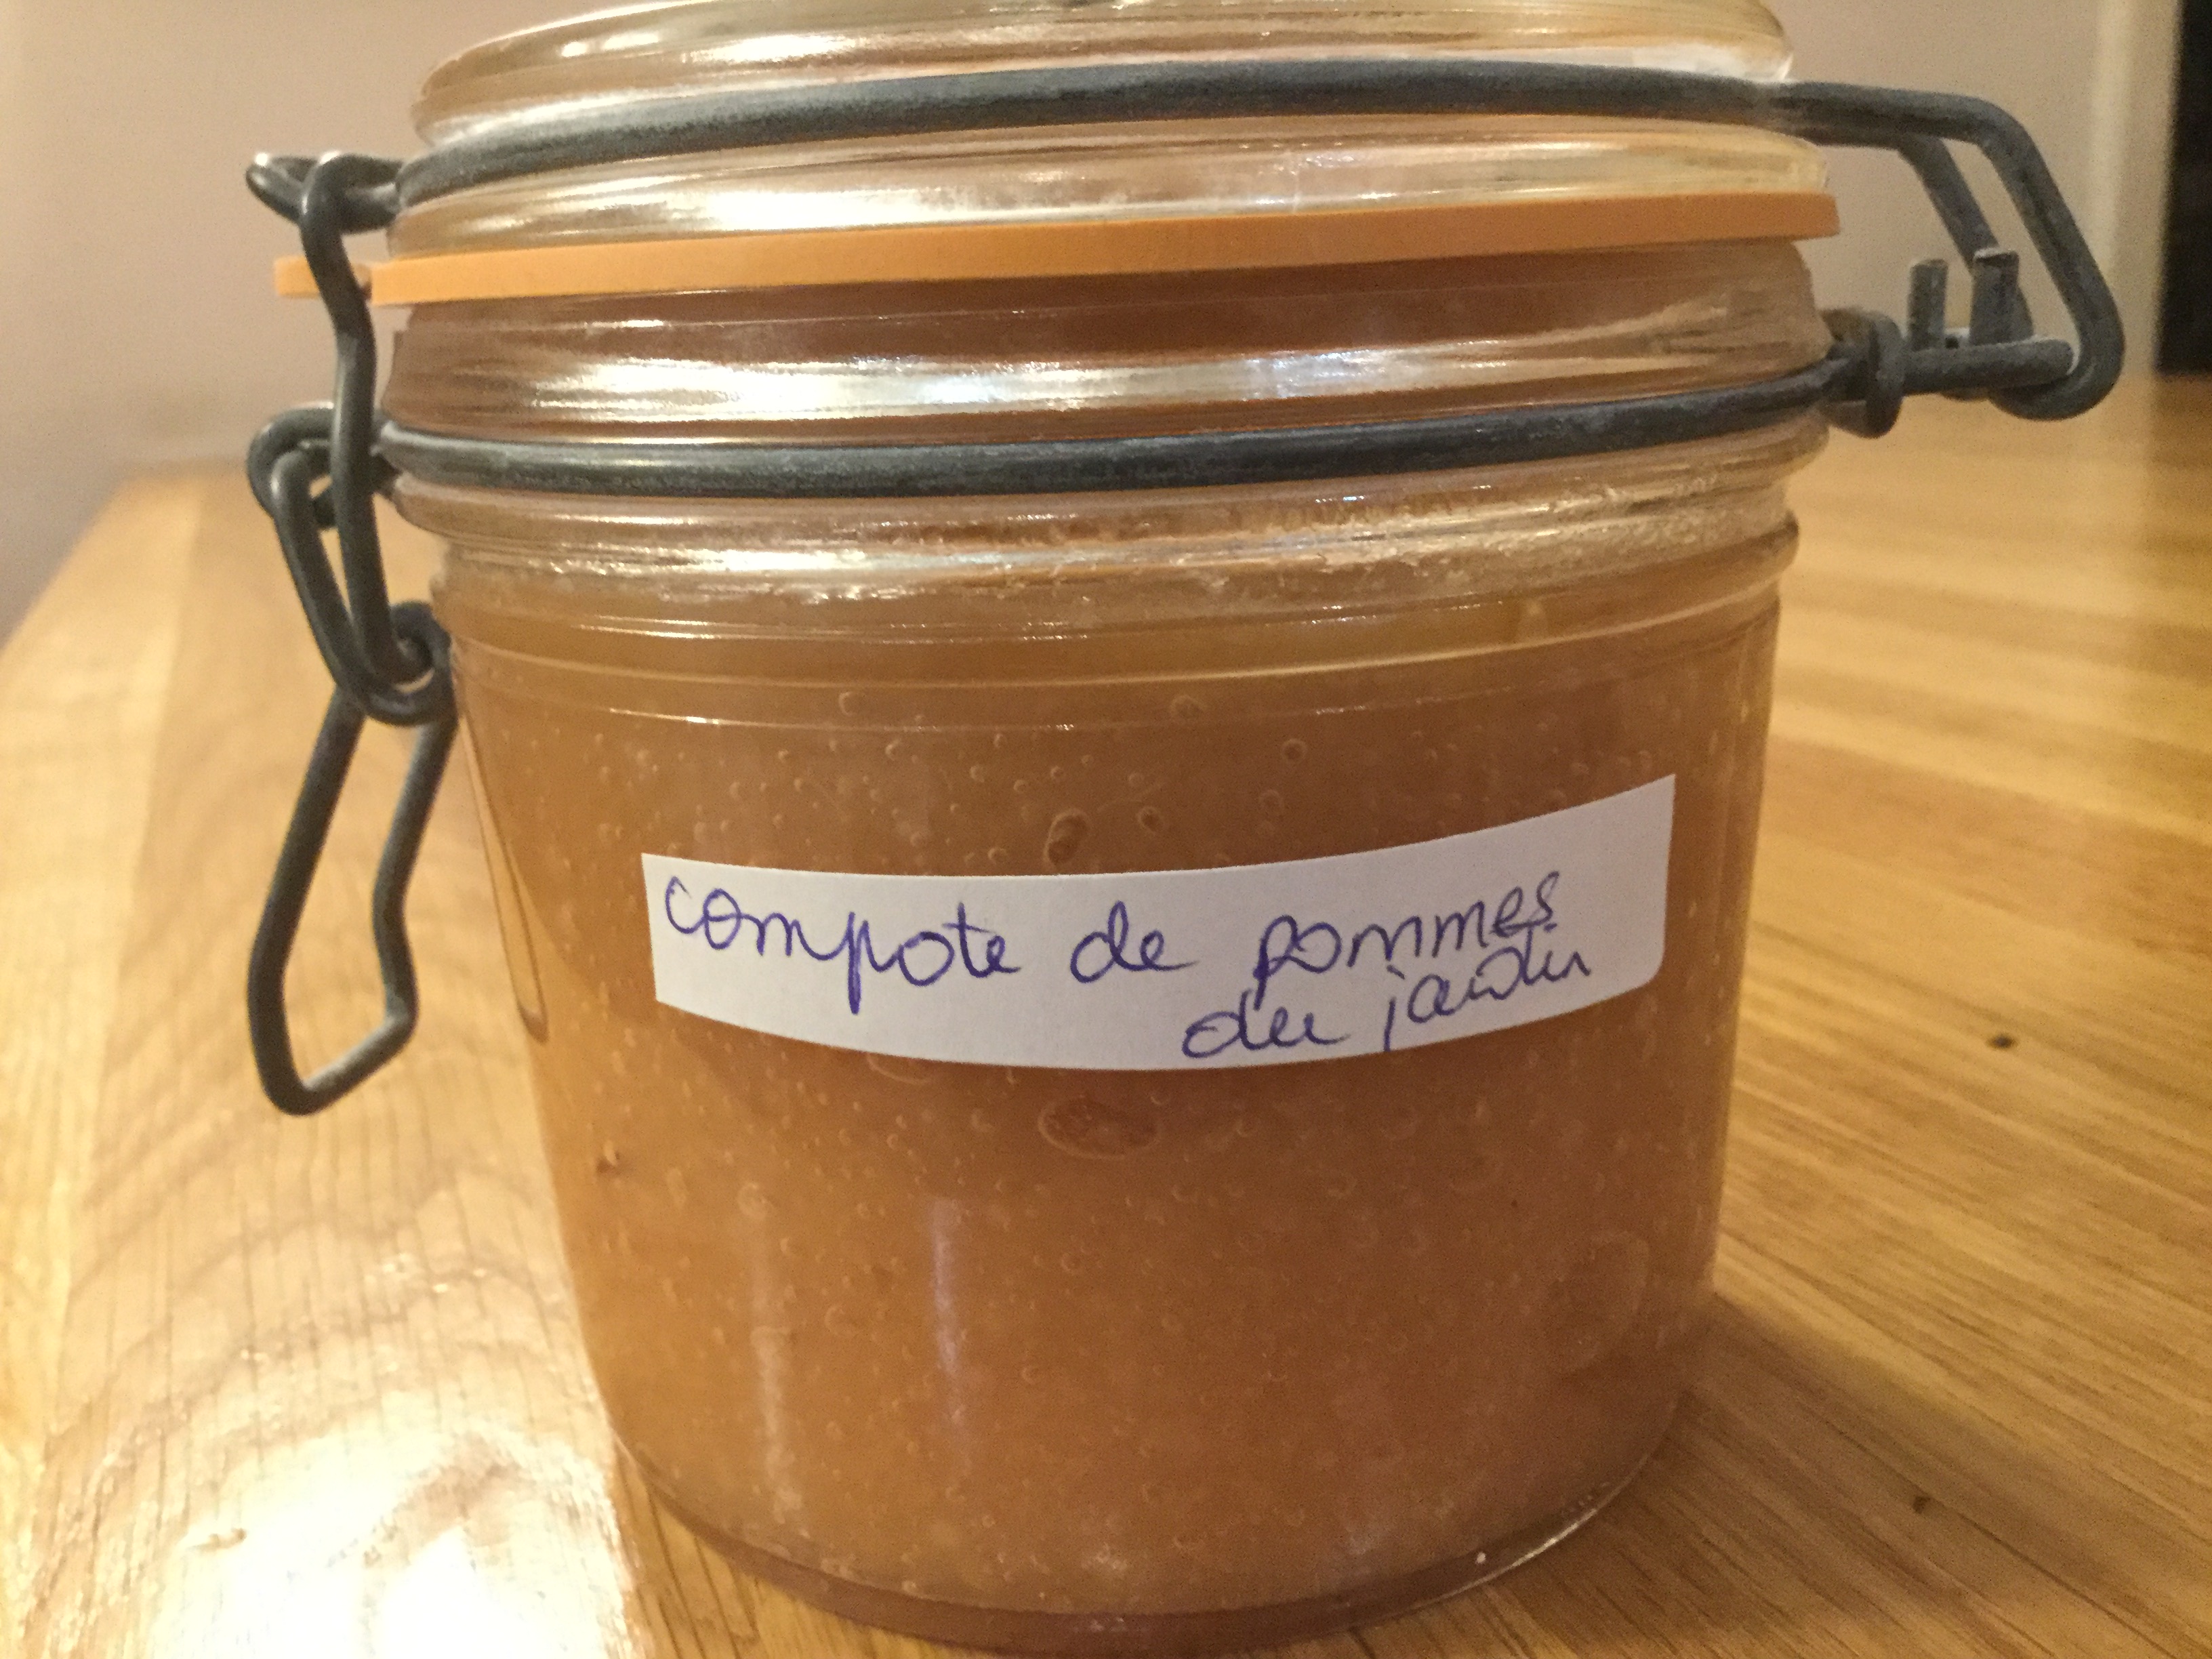 compote de pommes
du jardin